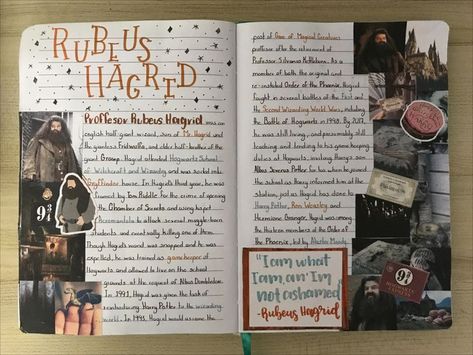 RUBEUS
HAGRID
Proffesor Rubeus Hagrid, was an
english half-giant wizard, son of Mr. Hagrid and
the giantess Fridwulfa, and older half-brother of the
giant Grawp. Hagrid attended Hogwarts School
of Witchcraft and Wizardry and was sorted into
Gryffindor house. In Hagrid's third year, he was
framed by Tom Riddle for the crime of opening
the Chamber of Secrets and using his pet
Acromantula to attack several muggle-born
students and eventually killing one of them.
Though Hagrid's wand was snapped and he was
expelled, he was trained as gamekeeper of
Hogwarts and allowed to live on the school
grounds at the request of Albus Dumbledore.
In 1991, Hagrid was given the task of
reintroducing Harry Potter to the wizarding
world. In 1993, Hagrid would assume the
9¾
post of Care of Magical Creatures
professor after the retirement of
Professor Silvanus Kettleburn. As a
member of both the original and
re-instated Order of the Phoenix, Hagrid
fought in several battles of the First and
the Second Wizarding World Wars, including
the Battle of Hogwarts in 1998. By 2017,
he was still living, and presumably still
teaching and tending to his game keeping
duties at Hogwarts, inviting Harry's son
Albus Severus Potter for tea when he joined
the school as Harry informed him at the
station, just as Hagrid has done to
Harry Potter, Ron Weasley and
Hermione Granger. Hagrid was among
the Hallows members of the Order of
the Phoenix, led by Alastor Moody.
"I am what
I am, an' I'm
not ashamed"
-Rubeus Hagrid
9¾
HOGWARTS
EXPRESS